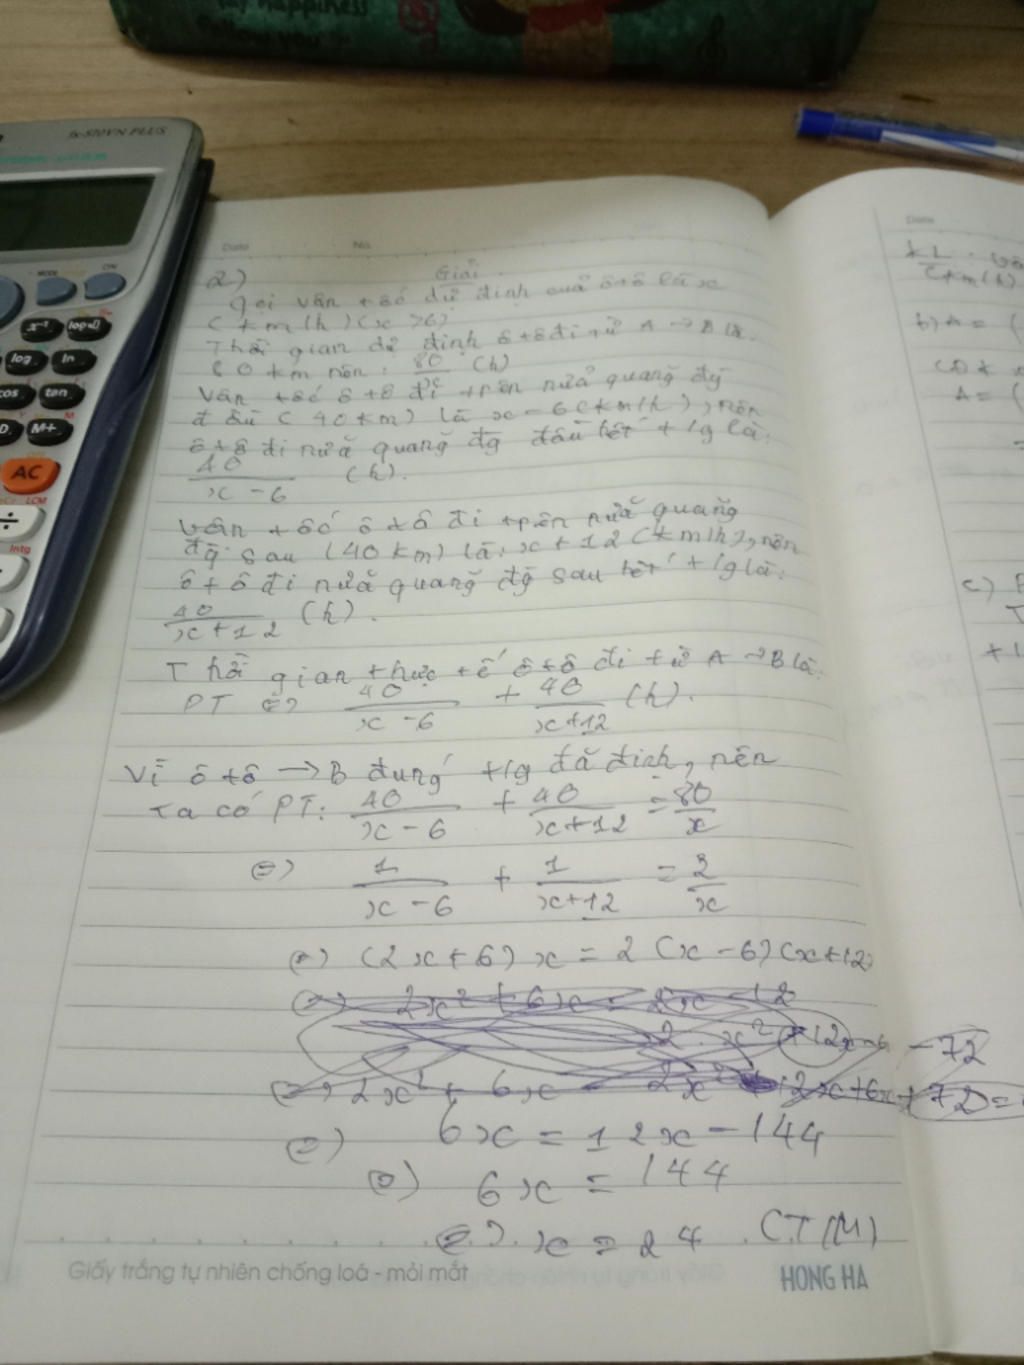 my Happiness
fx-570VN PLUS
Date No.
2) Giải
gọi vận tốc dự định của ô tô là x
(km/h) (x > 6)
Thời gian dự định ô tô đi từ A → B là
80 km nên : 80/x (h)
Vận tốc ô tô đi trên nửa quãng đg
đầu (40 km) là x - 6 (km/h), nên
ô tô đi nửa quãng đg đầu hết tg là:
40/(x - 6) (h).
Vận tốc ô tô đi trên nửa quãng
đg sau (40 km) là: x + 12 (km/h), nên
ô tô đi nửa quãng đg sau hết tg là:
40/(x + 12) (h).
Thời gian thực tế ô tô đi từ A → B là:
PT ⇔ 40/(x - 6) + 40/(x + 12) (h).
Vì ô tô → B đúng tg đã định, nên
ta có PT: 40/(x - 6) + 40/(x + 12) = 80/x
⇔ 1/(x - 6) + 1/(x + 12) = 2/x
⇔ (2x + 6) x = 2 (x - 6) (x + 12)
⇔ 2x² + 6x = 2x - 12
2 x² + 12x - 72
⇔ 2x² + 6x 2x² 12x + 6x + 72 =
⇔ 6x = 12x - 144
⇔ 6x = 144
⇔ x = 24 (TM)
Giấy trắng tự nhiên chống loá - mỏi mắt
HONG HA
Date
b) A =
A =
c)
MODE
x⁻¹
log
ln
cos
tan
M+
AC
÷
LCM
Intg